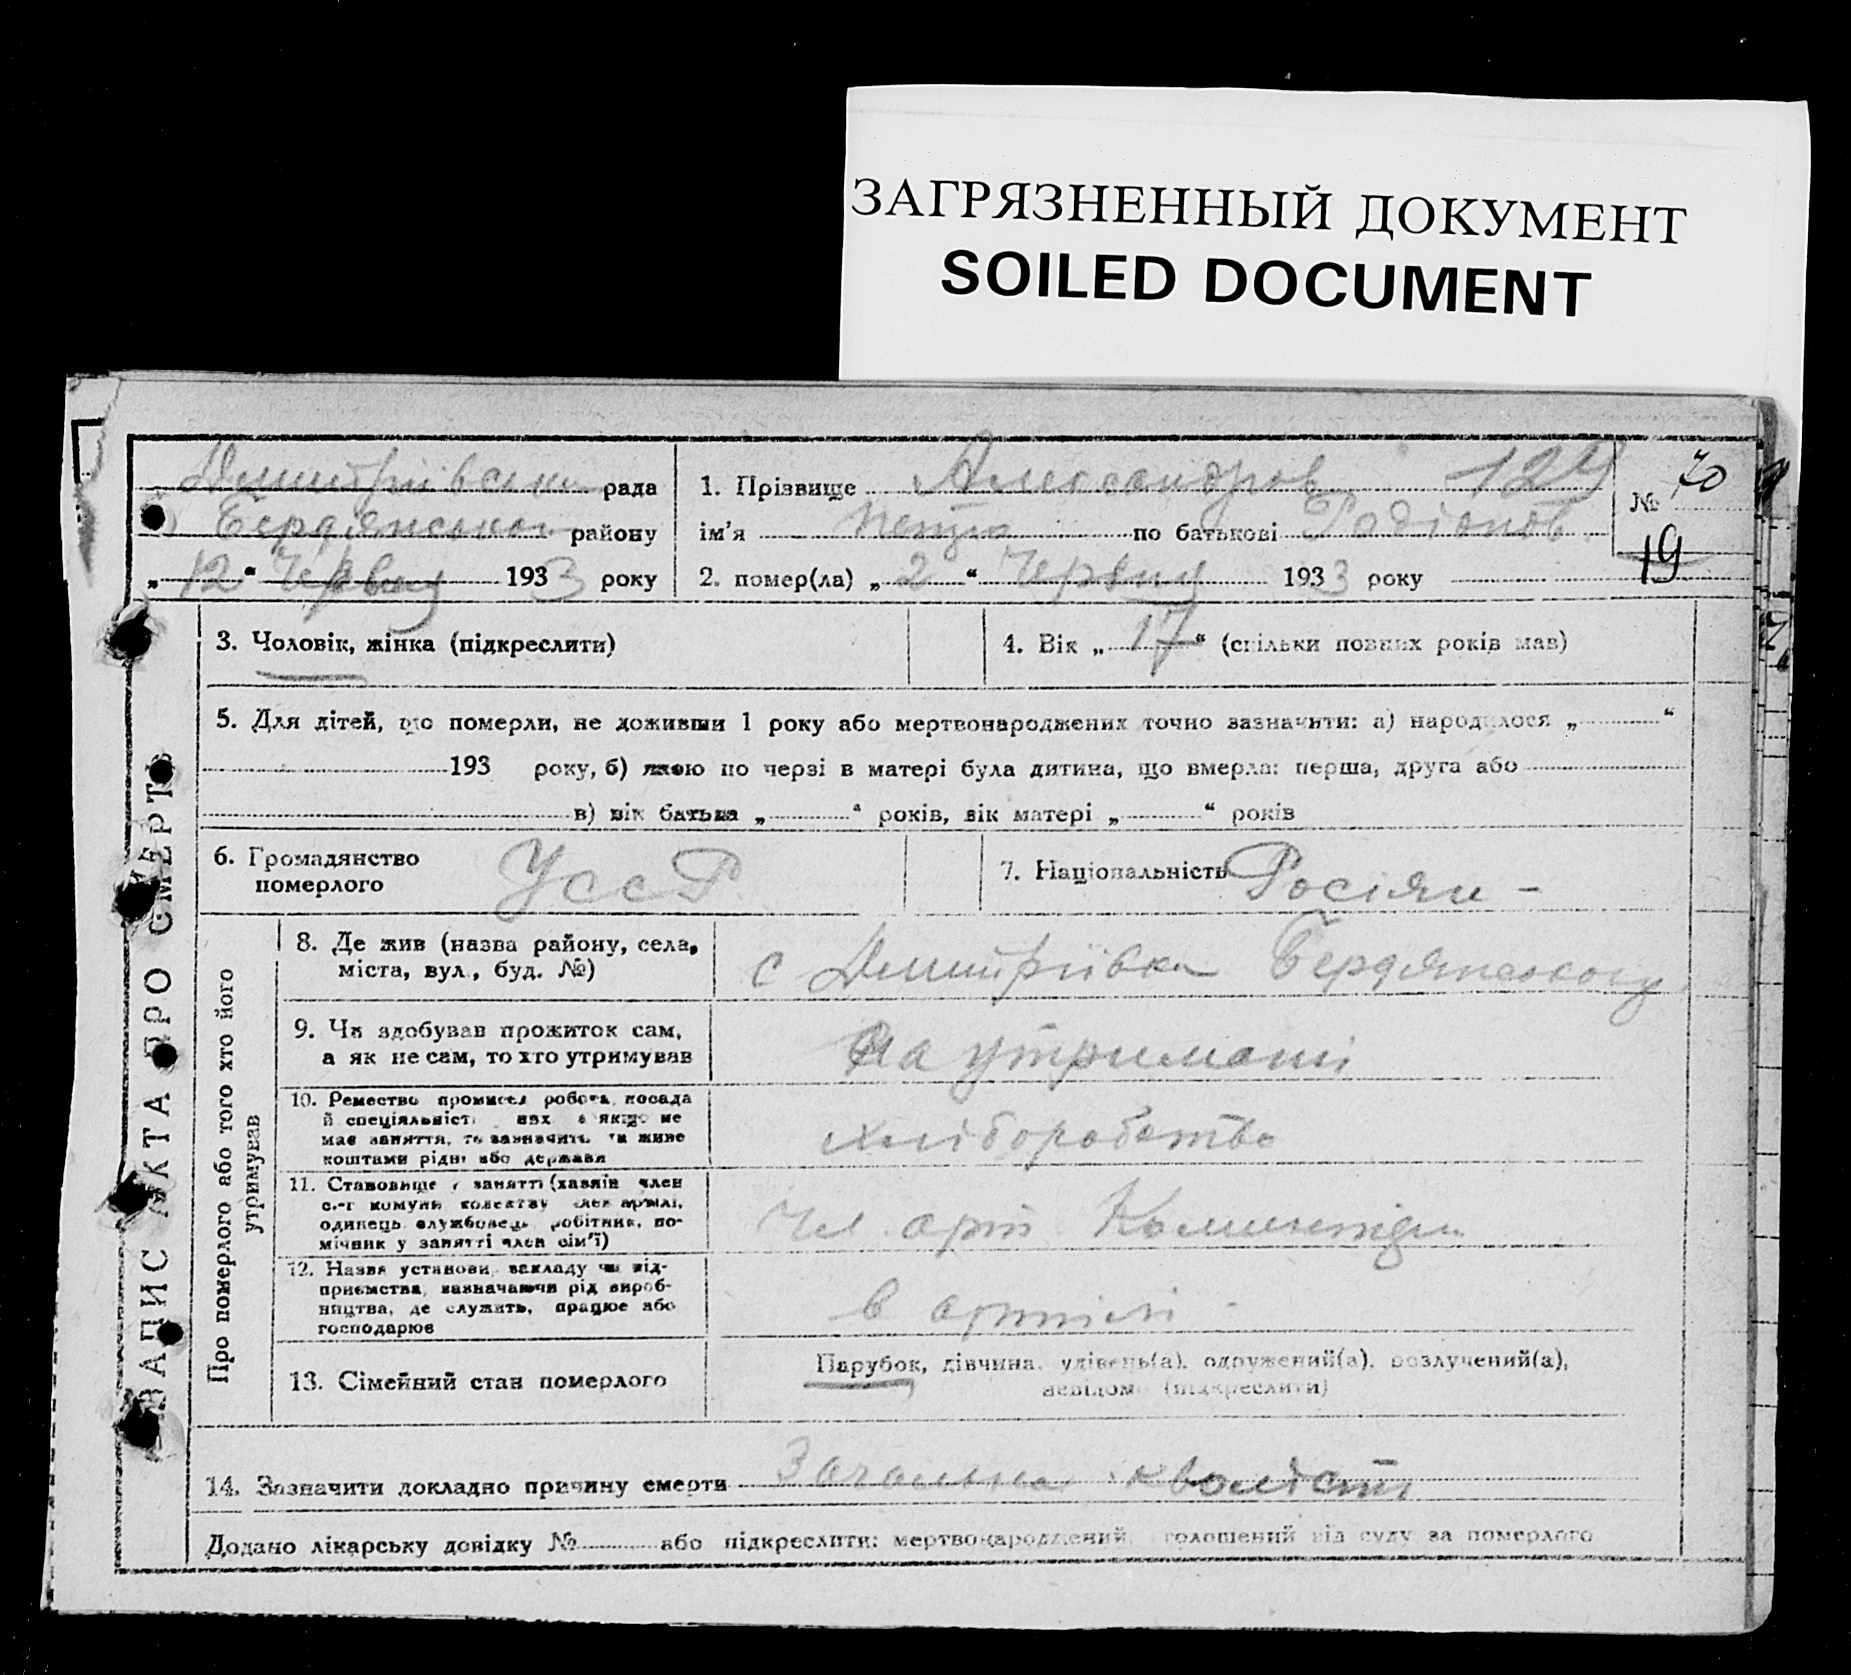 ЗАГРЯЗНЕННЫЙ ДОКУМЕНТ
SOILED DOCUMENT
Дмитріївська рада
Бердянського району
„12“ Червня 1933 року
1. Прізвище Александров 129
ім’я Петро по батькові Родіонов
2. помер(ла) „2“ Червня 1933 року
№ 70
19
ЗАПИС АКТА ПРО СМЕРТЬ
3. Чоловік, жінка (підкреслити)
4. Вік „17“ (скільки повних років мав)
5. Для дітей, що померли, не доживши 1 року або мертвонароджених точно зазначити: а) народилося „ “
193 року, б) якою по черзі в матері була дитина, що вмерла: перша, друга або
в) вік батька „ “ років, вік матері „ “ років
6. Громадянство
померлого УССР
7. Національність Росіян -
Про померлого або того хто його
утримував
8. Де жив (назва району, села,
міста, вул., буд. №)
с Дмитріївка Бердянського
9. Чи здобував прожиток сам,
а як не сам, то хто утримував
на утримані
10. Ремество промисел робота, посада
й спеціяльність а якщо не
має заняття, то зазначить чи живе
коштами рідні або держави
хліборобство
11. Становище в занятті (хазяїн член
с.-г комуни колективу член артілі,
одинець службовець робітник, по-
мічник у занятті член сім’ї)
Чл. арт Комінтерн
12. Назва установи, закладу чи під-
приємства, зазначаючи рід вироб-
ництва, де служить, працює або
господарює
в артілі -
13. Сімейний стан померлого
Парубок, дівчина, удівець(а), одружений(а), розлучений(а),
невідомо (підкреслити)
14. Зазначити докладно причину смерти Загальна кволість
Додано лікарську довідку № або підкреслити: мертвонароджений, оголошений від суду за померлого